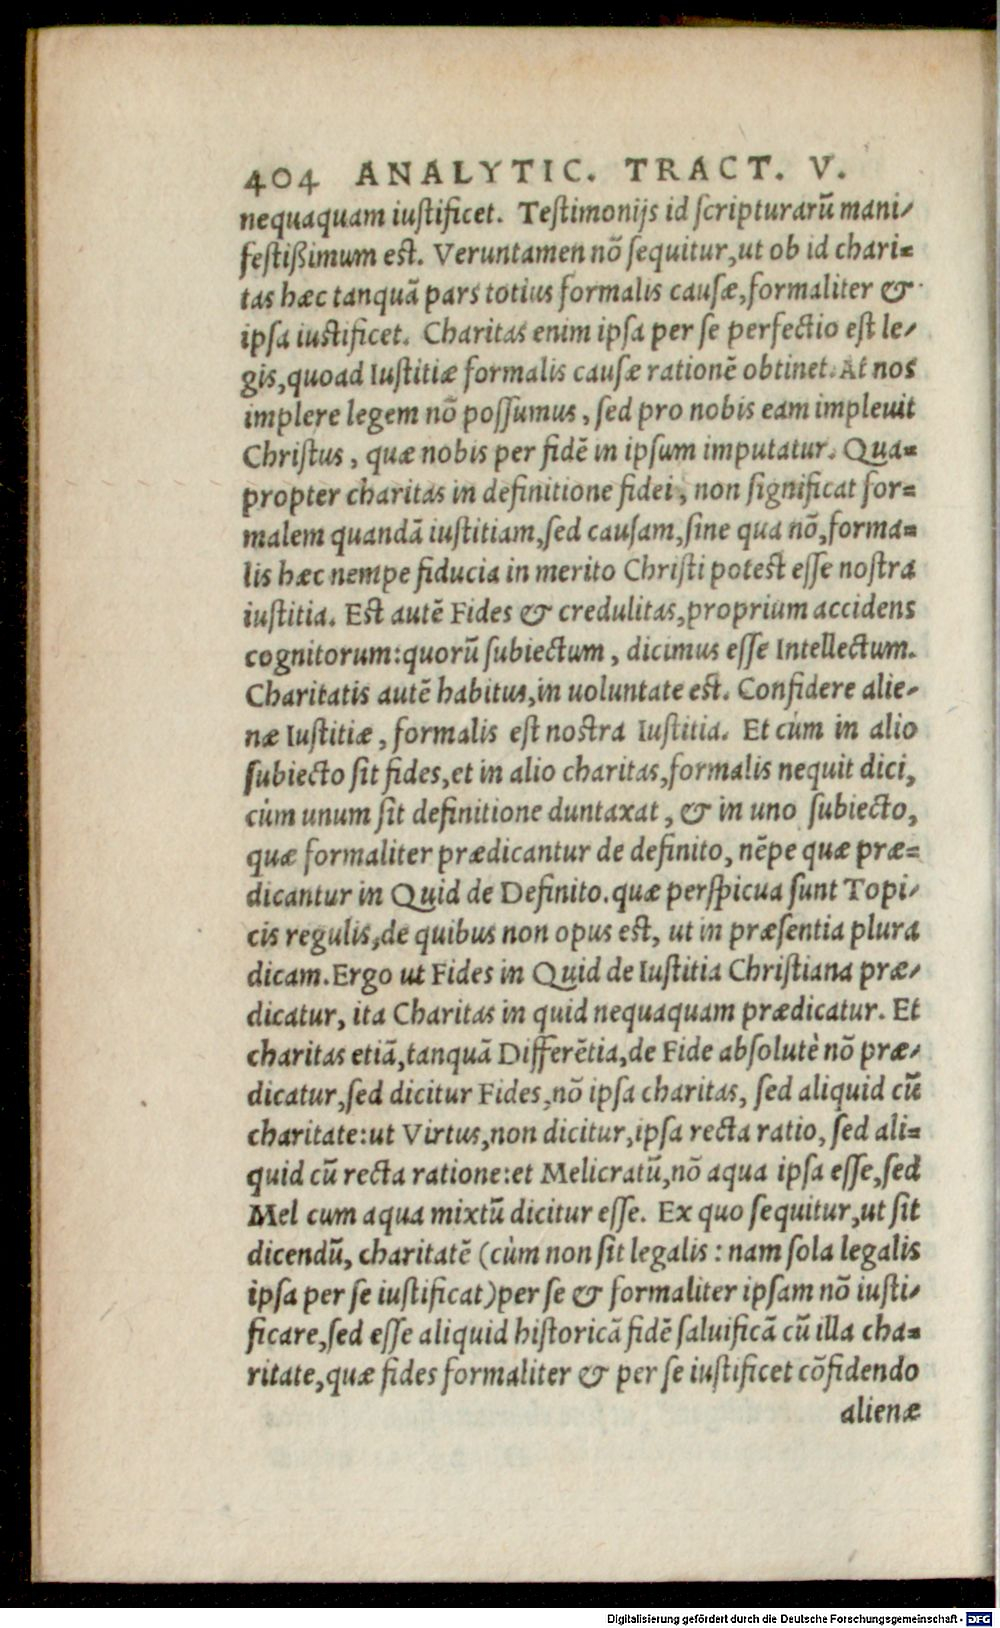 404 ANALYTIC. TRACT. V.
nequaquam iuſtificet. Teſtimonijs id ſcripturarũ mani/
feſtißimum eſt. Veruntamen nõ ſequitur,ut ob id chari=
tas hæc tanquã pars totius formalis cauſæ,formaliter &
ipſa iuſtificet. Charitas enim ipſa per ſe perfectio eſt le/
gis,quoad Iuſtitiæ formalis cauſæ rationẽ obtinet. At nos
implere legem nõ poſſumus, ſed pro nobis eam impleuit
Chriſtus, quæ nobis per fidẽ in ipſum imputatur. Qua=
propter charitas in definitione fidei, non ſignificat for=
malem quandã iuſtitiam,ſed cauſam,ſine qua nõ,forma=
lis hæc nempe fiducia in merito Chriſti poteſt eſſe noſtra
iuſtitia. Eſt autẽ Fides & credulitas,proprium accidens
cognitorum:quorũ ſubiectum, dicimus eſſe Intellectum.
Charitatis autẽ habitus,in uoluntate eſt. Confidere alie/
næ Iuſtitiæ, formalis eſt noſtra Iuſtitia. Et cùm in alio
ſubiecto ſit fides,et in alio charitas,formalis nequit dici,
cùm unum ſit definitione duntaxat, & in uno ſubiecto,
quæ formaliter prædicantur de definito, nẽpe quæ præ=
dicantur in Quid de Definito.quæ perſpicua ſunt Topi/
cis regulis,de quibus non opus eſt, ut in præſentia plura
dicam.Ergo ut Fides in Quid de Iuſtitia Chriſtiana præ/
dicatur, ita Charitas in quid nequaquam prædicatur. Et
charitas etiã,tanquã Differẽtia,de Fide abſolutè nõ præ/
dicatur,ſed dicitur Fides,nõ ipſa charitas, ſed aliquid cũ
charitate:ut Virtus,non dicitur,ipſa recta ratio, ſed ali=
quid cũ recta ratione:et Melicratũ,nõ aqua ipſa eſſe,ſed
Mel cum aqua mixtũ dicitur eſſe. Ex quo ſequitur,ut ſit
dicendũ, charitatẽ (cùm non ſit legalis: nam ſola legalis
ipſa per ſe iuſtificat)per ſe & formaliter ipſam nõ iuſti/
ficare,ſed eſſe aliquid hiſtoricã fidẽ ſaluificã cũ illa cha=
ritate,quæ fides formaliter & per ſe iuſtificet cõfidendo
alienæ
Digitalisierung gefördert durch die Deutsche Forschungsgemeinschaft - DFG